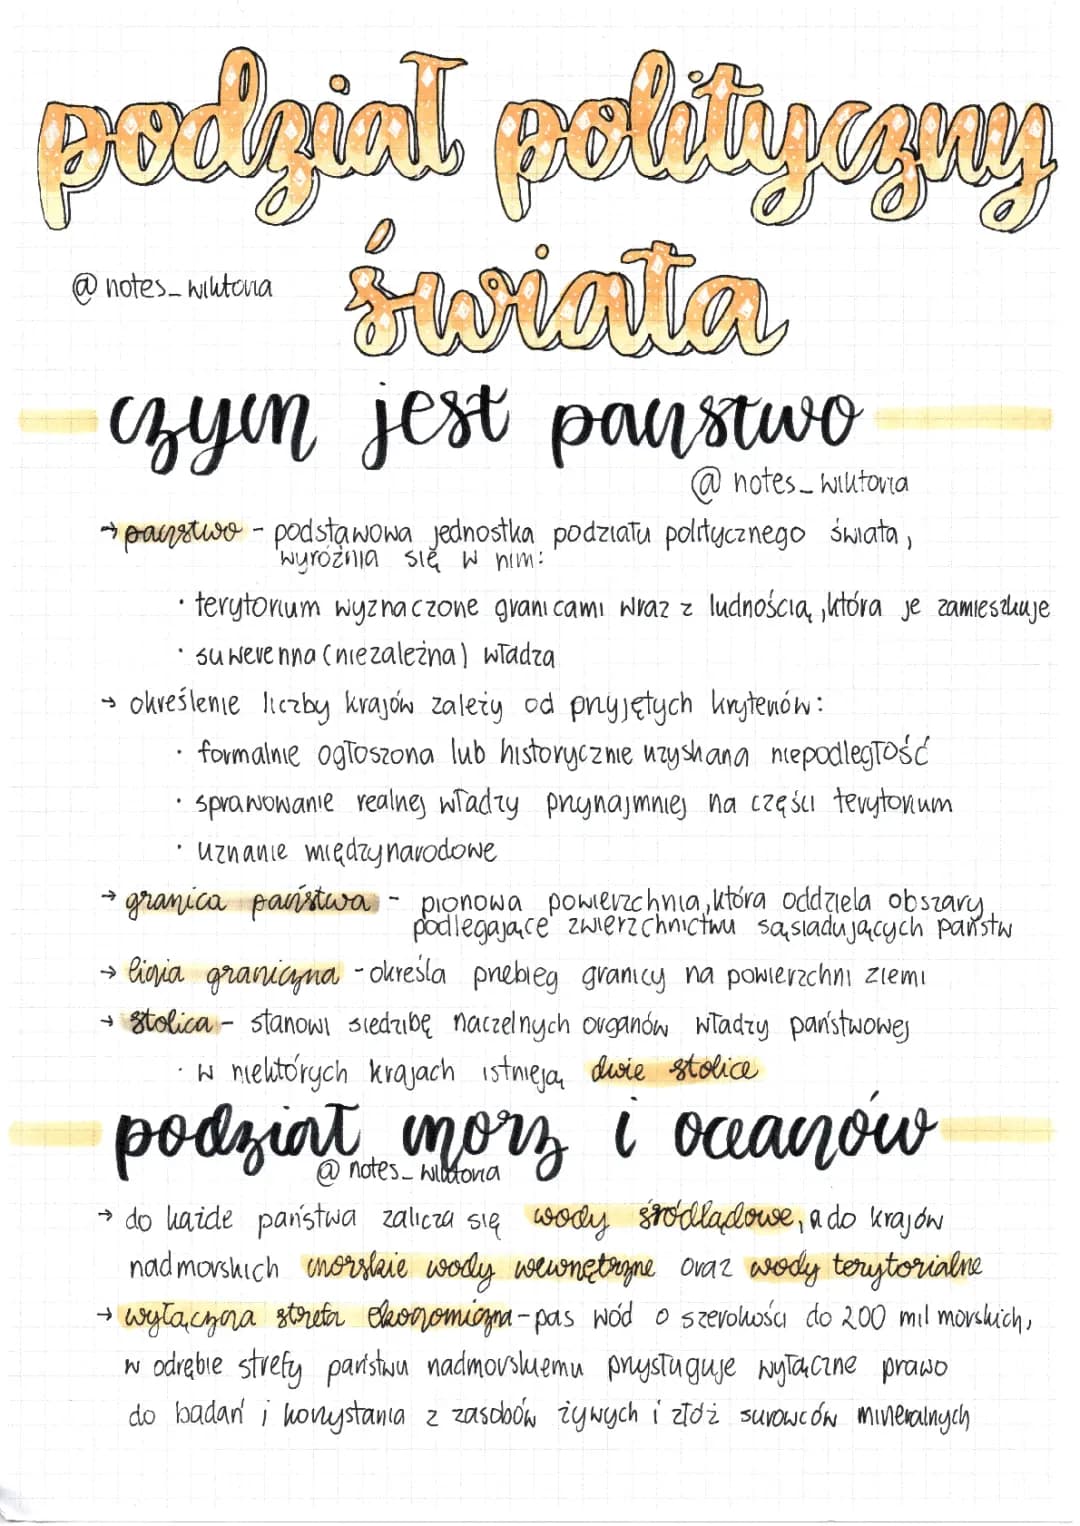 podział polityczny
świata
@ notes_wiktoria
czym jest państwo
@ notes_wiktoria
→ państwo - podstawowa jednostka podziału politycznego świata,
wyróżnia się w nim:
· terytorium wyznaczone granicami wraz z ludnością, która je zamieszkuje
· suwerenna (niezależna) władza
→ określenie liczby krajów zależy od przyjętych kryteriów:
· formalnie ogłoszona lub historycznie uzyskana niepodległość
· sprawowanie realnej władzy przynajmniej na części terytorium
· uznanie międzynarodowe
→ granica państwa - pionowa powierzchnia, która oddziela obszary
podlegające zwierzchnictwu sąsiadujących państw
→ linia graniczna - określa przebieg granicy na powierzchni ziemi
→ stolica - stanowi siedzibę naczelnych organów władzy państwowej
· w niektórych krajach istnieją dwie stolice
podział mórz i oceanów
@ notes_wiktoria
→ do każde państwa zalicza się wody śródlądowe, a do krajów
nadmorskich morskie wody wewnętrzne oraz wody terytorialne
→ wyłączna strefa ekonomiczna - pas wód o szerokości do 200 mil morskich,
w odrębie strefy państwu nadmorskiemu przysługuje wyłączne prawo
do badań i korzystania z zasobów żywych i złóż surowców mineralnych